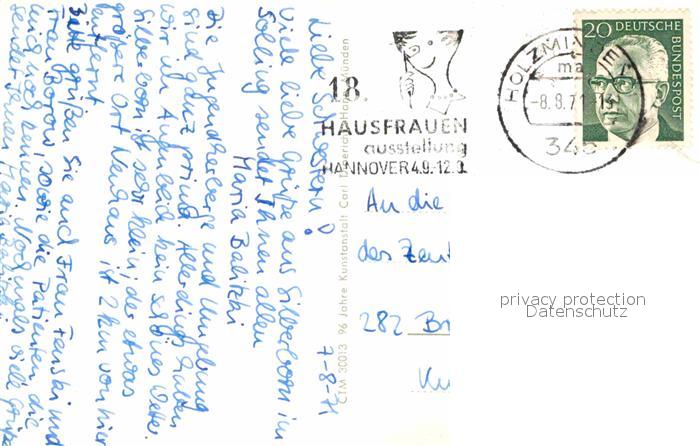 7-8-71
Liebe Schwestern!
Viele liebe Grüße aus Silberborn im
Solling sendet Ihnen allen
Maria Balitzki
Die Jugendherberge und Umgebung
sind ganz prima. Allerdings haben
wir im Augenblick kein schönes Wetter.
Silberborn ist sehr klein, der etwas
größere Ort Neuhaus ist 2 km von hier
entfernt.
Bitte grüßen Sie auch Frau Fenski und
Frau Borow, sowie die Patienten die
mich noch kennen. Nochmals viele Grüße
sendet Ihnen Maria Balitzki
CTM 30013 96 Jahre Kunstanstalt Carl Hann. Münden
18.
HAUSFRAUEN
ausstellung
HANNOVER 4.9.-12.9.
HOLZMINDEN
-8.8.71
345
20 DEUTSCHE
BUNDESPOST
An die
des Zent
282 Br
privacy protection
Datenschutz